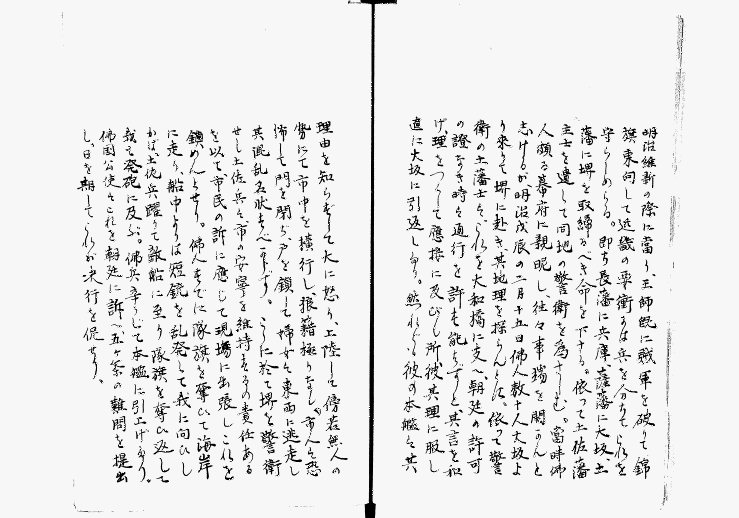 明治維新の際に當り、王師既に賊軍を破りて錦
旗東向して近畿の要衝には兵を分ちてこれを
守らしめらる。即ち長藩に兵庫、薩藩に大坂、土
藩に堺を取締るべき命を下さる。依つて土佐藩
主士を遣して同地の警衛を為さしむ。當時佛
人頗る幕府に親昵し、往々事端を開かんと
志けるが明治戊辰の二月十五日佛人数十人大坂よ
り来りて堺に赴き其地理を探らんとす。依つて警
衛の土藩士等これを大和橋に支へ、朝廷の許可
の證なき時は通行を許す能はずと其言を和
げ、理をつくして應接に及びし所彼其理に服し
直に大坂に引返しぬ。然れども彼の本艦は其
理由を知らずして大に怒り、上陸して傍若無人の
勢にて市中を横行し、狼籍極りなし。市人は恐
怖して門を閉ぢ、戸を鎖して婦女は東西に逃走し
其混乱名状すべからず。こゝに於て堺を警衛
せし土佐兵は市の安寧を維持するの責任ある
を以て市民の訴に應じて現場に出張しこれを
鎮めんとせり。佛人すでに隊旗を奪ひて海岸
に走り、船中よりは短銃を乱発して我に向ひし
かば、土佐兵躍りて敵船に至り隊旗を奪ひ返して
我も発砲に及ぶ。佛兵辛うじて本艦に引上げたり。
佛国公使はこれを朝廷に訴へ五ヶ条の難問を提出
し、日を期してこれが决行を促せり。